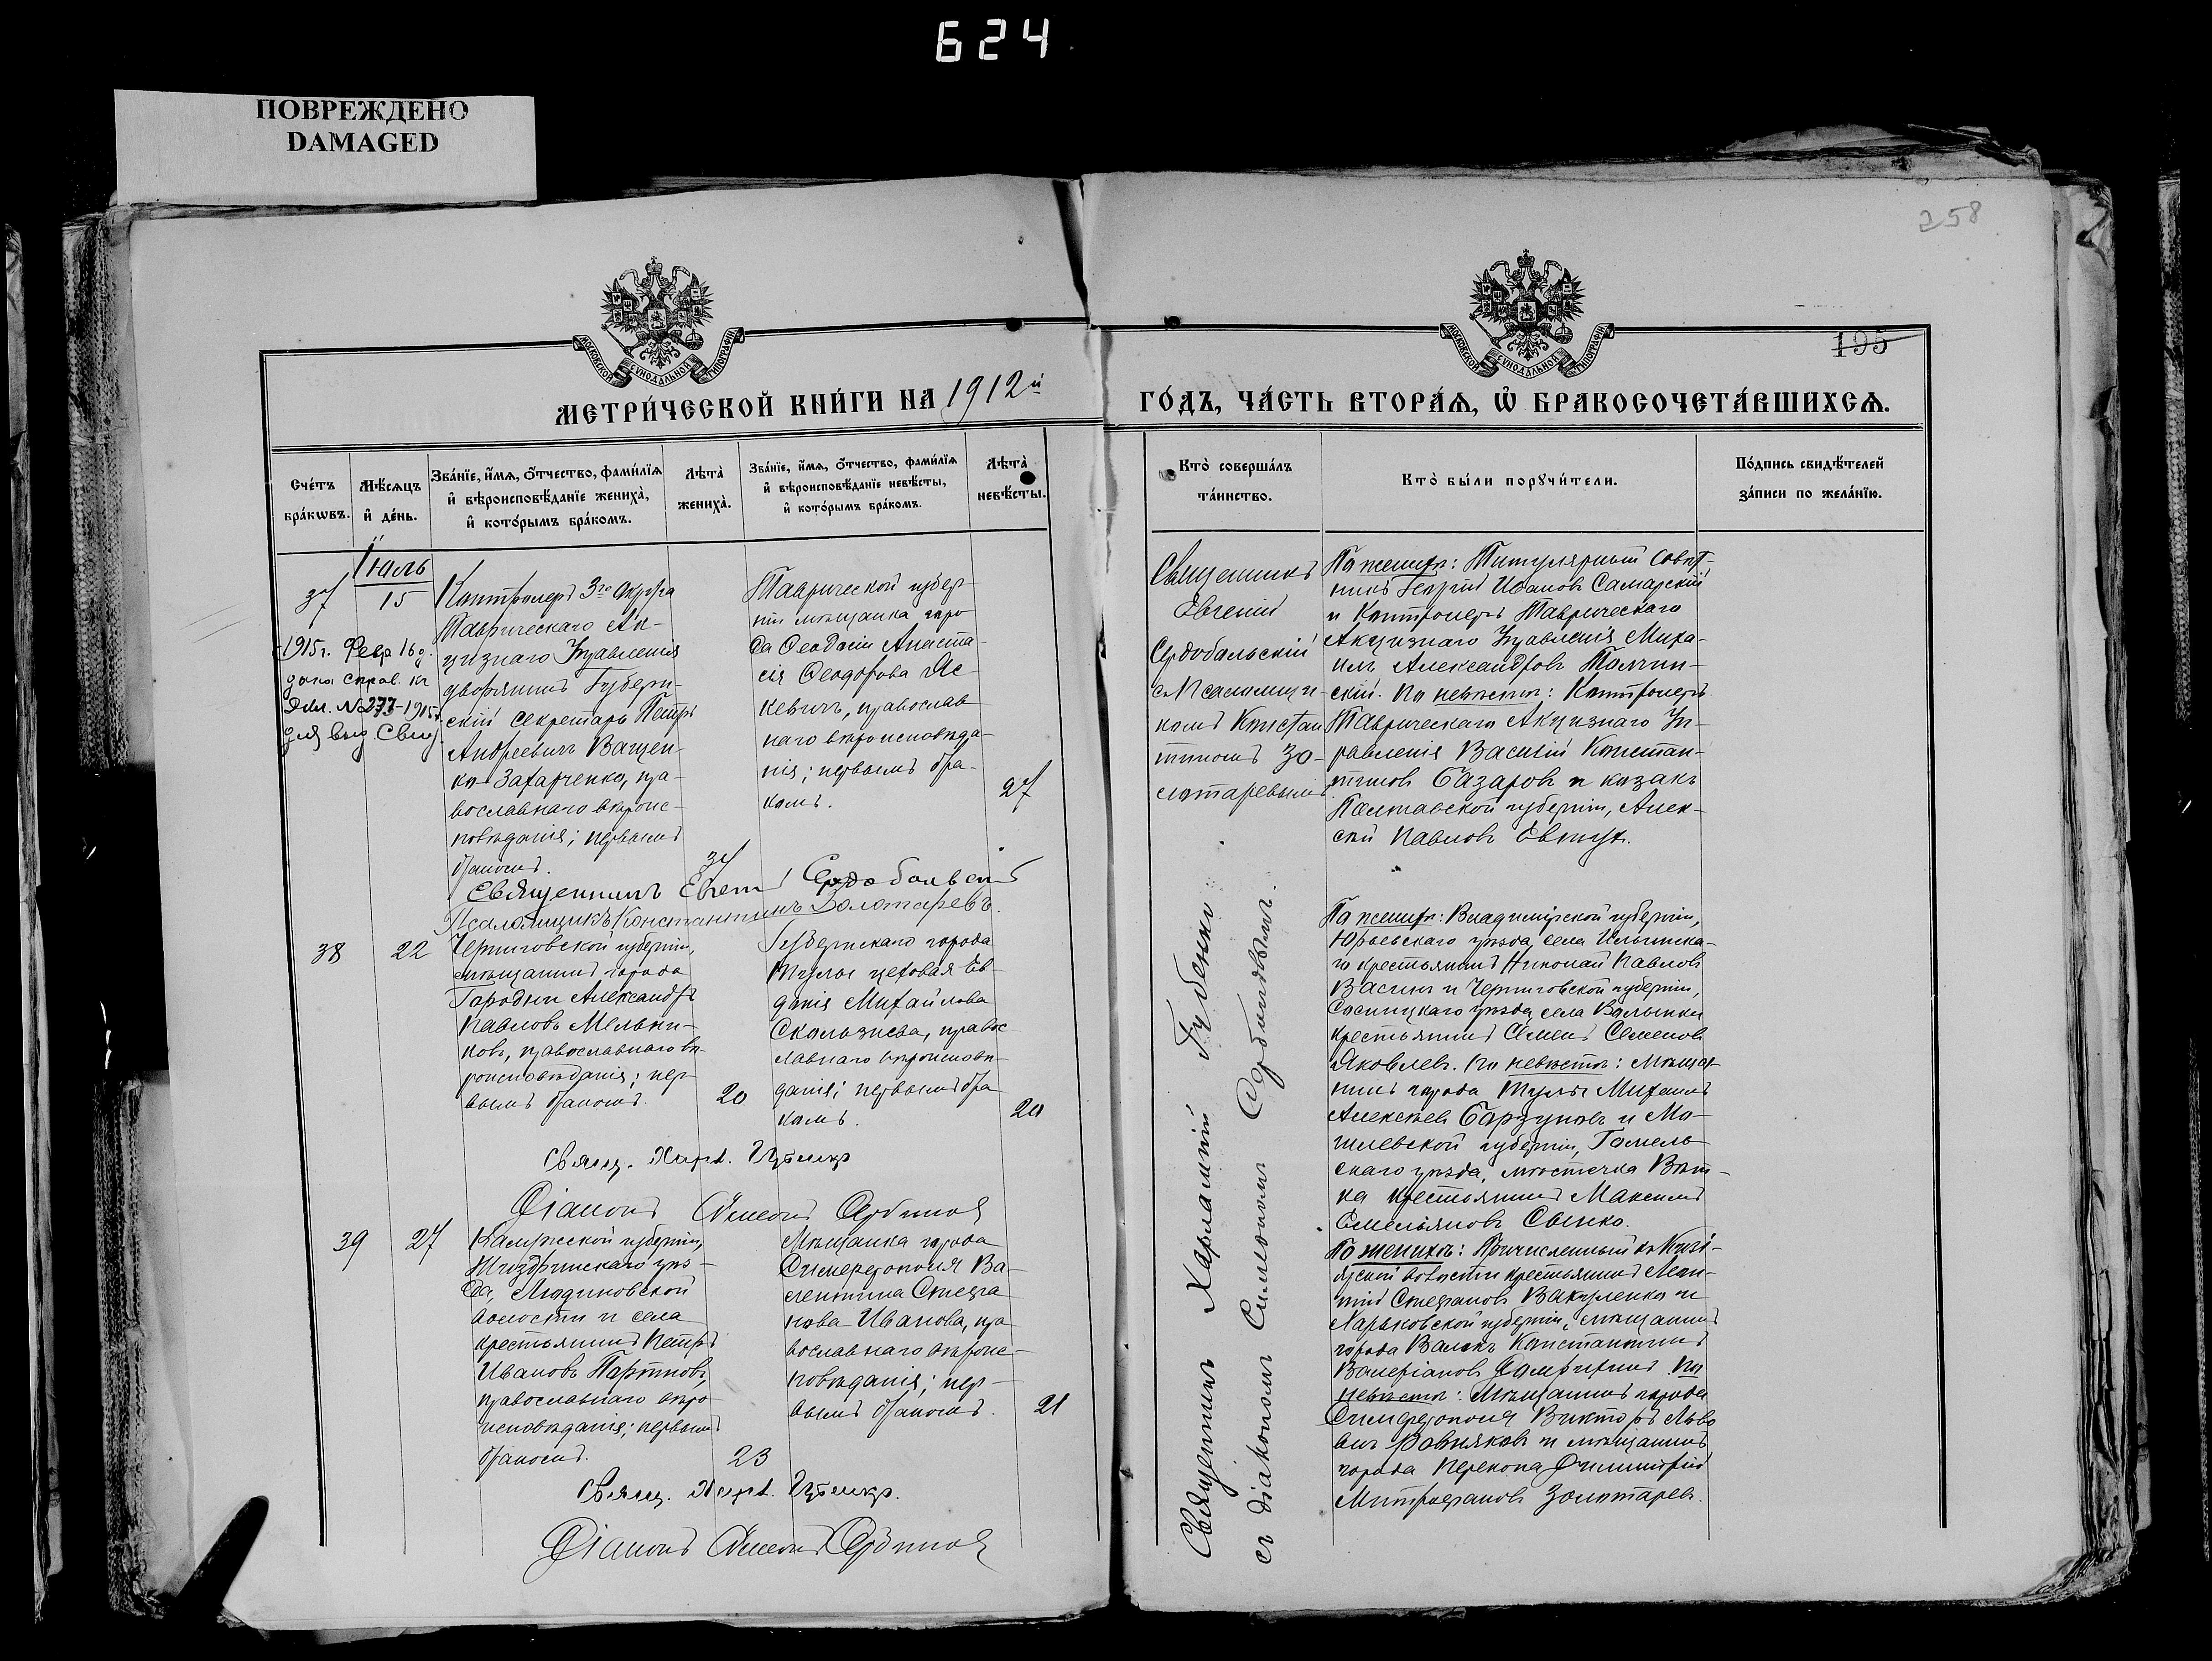 624
ПОВРЕЖДЕНО
DAMAGED
258
195
МОСКОВСКОЙ СѴНОДАЛЬНОЙ ТИПОГРАФІИ
МОСКОВСКОЙ СѴНОДАЛЬНОЙ ТИПОГРАФІИ
МЕТРИ́ЧЕСКОЙ КНИ́ГИ НА 1912й
ГО́ДЪ, ЧА́СТЬ ВТОРА́Ѧ, Ѡ҆ БРАКОСОЧЕТА́ВШИХСѦ.
Сче́тъ
бра́кѡвъ.
Мѣ́сѧцъ
и҆ де́нь.
Зва́нїе, и҆́мѧ, ѻ҆́тчество, фами́лїѧ
и҆ вѣроисповѣ́данїе жениха̀,
и҆ кото́рымъ бра́комъ.
Лѣта̀
жениха̀.
Зва́нїе, и҆́мѧ, ѻ҆́тчество, фами́лїѧ
и҆ вѣроисповѣ́данїе невѣ́сты,
и҆ кото́рымъ бра́комъ.
Лѣта̀
невѣ́сты.
Кто̀ соверша́лъ
та́инство.
Кто̀ бы́ли порꙋчи́тели.
По́дпись свидѣ́телей
за́писи по жела́нїю.
Іюль
37
15
1915г. Февр 16 д.
дана справ. къ
дѣл. №277-1915г.
для выд. Свид.
Контролеръ 3го округа
Таврическаго Ак-
цизнаго Управленія
дворянинъ Губерн-
скій секретарь Петръ
Андреевичъ Ващен-
ко-Захарченко, пра-
вославнаго вѣроис-
повѣданія; первымъ
бракомъ.
37
Таврической губер-
ніи мѣщанка горо
да Ѳеодосіи Анаста-
сія Ѳеодорова Яс-
кевичъ, православ
наго вѣроисповѣда-
нія; первымъ бра-
комъ.
27
Священникъ
Евгеній
Сердобольскій
съ Псаломщи-
комъ Констан
тиномъ Зо-
лотаревымъ
По женихѣ: Титулярный совѣт-
никъ Георгій Ивановъ Самарскій
и Контролеръ Таврическаго
Акцизнаго Управленія Миха-
илъ Александровъ Толчин-
скій. По невѣстѣ: Контролеръ
Таврическаго Акцизнаго Уп-
равленія Василій Констан-
тиновъ Базаровъ и казакъ
Полтавской губерніи, Алек-
сѣй Павловъ Евтух.
Священникъ Евгеній Сердобольскій
Псаломщикъ Константинъ Золотаревъ.
38
22
Черниговской губерніи,
мѣщанинъ города
Городни Александръ
Павловъ Мельни-
ковъ, православнаго вѣ-
роисповѣданія; пер-
вымъ бракомъ.
20
Губернскаго города
Тулы цеховая Ев-
данія Михайлова
Скользнева, правос
лавнаго вѣроисповѣ-
данія; первымъ бра
комъ.
20
По женихѣ: Владимірской губерніи,
Юрьевскаго уѣзда, села Ильинска-
го крестьянинъ Николай Павловъ
Васинъ и Черниговской губерніи,
Сосницкаго уѣзда, села Волынки
крестьянинъ Семенъ Семеновъ
Яковлевъ. По невѣстѣ: мѣща-
нинъ города Тулы Михаилъ
Алексѣевъ Барзуновъ и Мо-
гилевской губерніи, Гомель-
скаго уѣзда, мѣстечка Вѣт-
ка крестьянинъ Максимъ
Емельяновъ Сынко.
Свящ. Харл. Губенко
Діаконъ Симеонъ Сербиновъ
39
27
Калужской губерніи,
Жиздринскаго уѣз-
да, Людиновской
волости и села
крестьянинъ Петръ
Ивановъ
православнаго вѣро
исповѣданія; первымъ
бракомъ.
23
Мѣщанка города
Симферополя Ва-
лентина Стефа
нова Иванова, пра
вославнаго вѣроис-
повѣданія; пер-
вымъ бракомъ.
21
По женихѣ: Причисленный къ
волости крестьянинъ
Стефановъ Вакуленко и
Харьковской губерніи, мѣщанинъ
города Валокъ Константинъ
Валеріановъ По
невѣстѣ: Мѣщанинъ города
Симферополя Викторъ Льво
вичъ и мѣщанинъ
города Перекопа Димитрій
Митрофановъ Золотаревъ.
Свящ. Харл. Губенко.
Діаконъ Симеонъ Сербиновъ
Священникъ Харлампій Губенко
съ діакономъ Симеономъ Сербиновымъ.